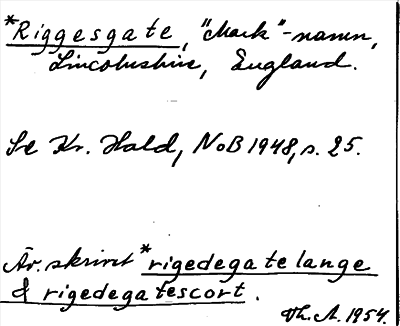 *Riggesgate, "Mark"-namn,
Lincolnshire, England.
Se Kr. Hald, NoB 1948, s. 25.
Är. skrivet *rigedegate lange
& rigedegatescort.
Th. A. 1954.